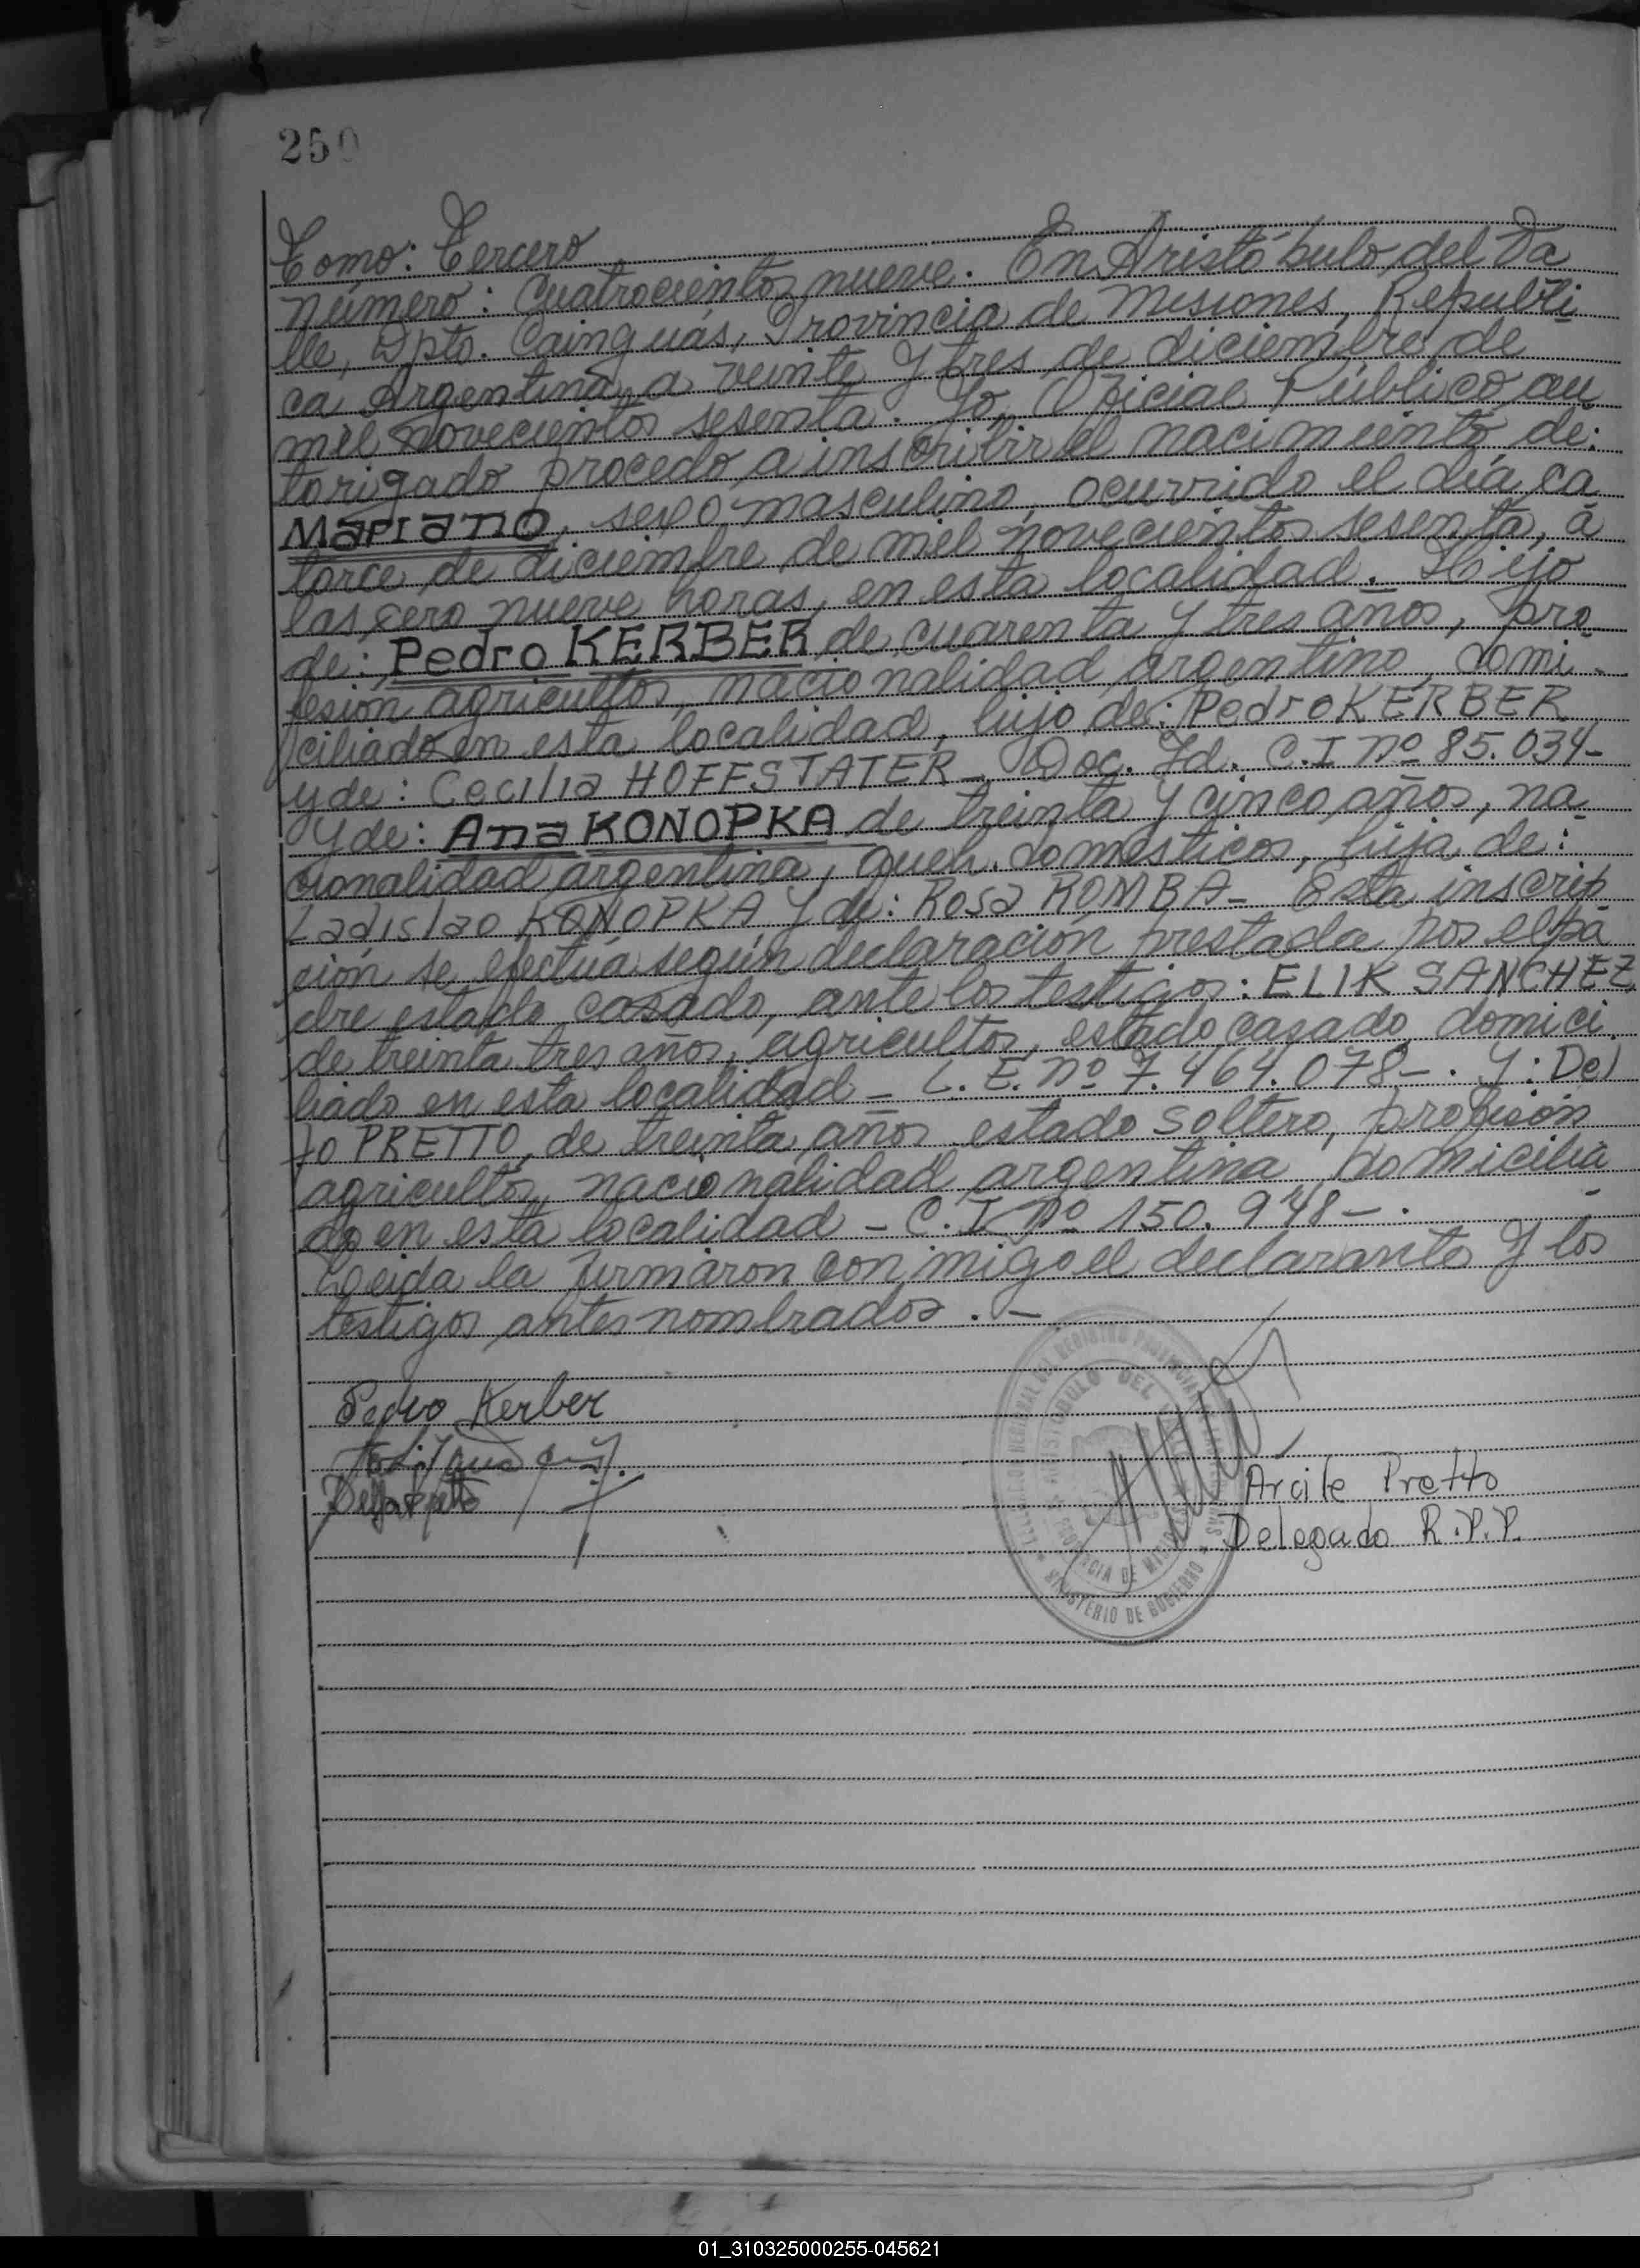 250
Tomo: Tercero
número: Cuatrocientos nueve. En Aristóbulo del Va
lle, Dpto. Cainguás, Provincia de Misiones, Repúbli
ca Argentina, a veinte y tres de diciembre de
mil novecientos sesenta. Yo, Oficial Público au
torizado procedo a inscribir el nacimiento de:
Mariano, sexo masculino, ocurrido el día ca
torce de diciembre de mil novecientos sesenta, a
las cero nueve horas, en esta localidad. Hijo
de: Pedro KERBER de cuarenta y tres años, pro
fesión agricultor, nacionalidad argentino, domi-
ciliado en esta localidad, hijo de: Pedro KERBER
y de: Cecilia HOFFSTATER - Doc. Id. C.I nº 85.034-
Y de: Ana KONOPKA de treinta y cinco años, na
cionalidad argentina, queh. domésticos, hija de:
Ladislao KONOPKA y de: Rosa ROMBA- Esta inscrip
ción se efectúa según declaración prestada por el pa
dre estado casado, ante los testigos: ELIK SANCHEZ
de treinta tres años, agricultor, estado casado domici
liado en esta localidad - L.E. nº 7.464.078-. Y: Del
fo PRETTO, de treinta años estado soltero, profesión
agricultor, nacionalidad argentina domicilia
do en esta localidad - C.I nº 150.948-.
Leida la firmaron conmigo el declarante y los
testigos antes nombrados. -
Pedro Kerber
Delfo Pretto
Arcile Pretto
Delegado R.P.P.
ARISTOBULO DEL VALLE
PROVINCIA DE MISIONES
MINISTERIO DE GOBIERNO
01_310325000255-045621